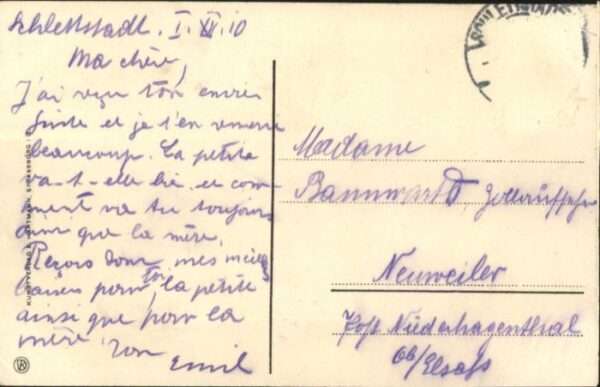 Schlettstadt. I. XII. 10
Ma chère,
J'ai reçu ton
et je t'en remerci
beaucoup. La petite
va-t-elle bien et com-
ment va tu toujours
ainsi que la mère,
Reçois donc mes meilleurs
baisers pour toi, la petite
ainsi que pour la
mère. Ton
Emil
Madame
Bannwarth, Zollaufseher
Neuweiler
Post Niederhagenthal
Ob/Elsass